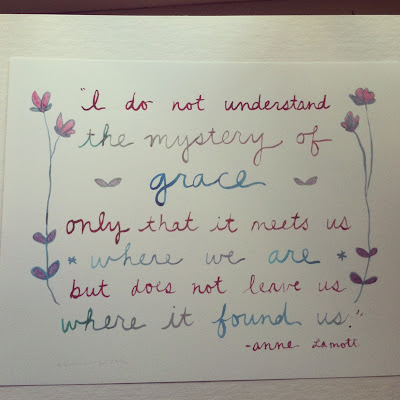 "I do not understand
the mystery of
grace
only that it meets us
*where we are*
but does not leave us
where it found us."
-anne Lamott